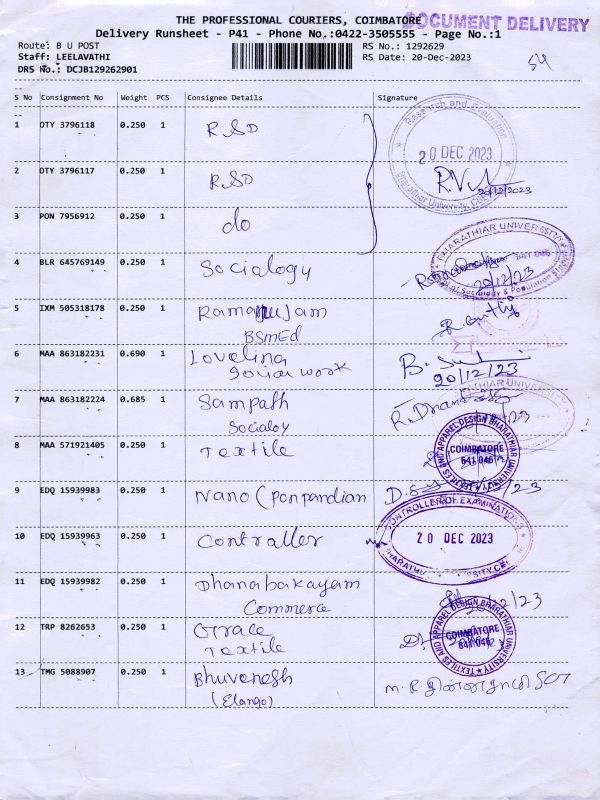 THE PROFESSIONAL COURIERS, COIMBATORE
DOCUMENT DELIVERY
Delivery Runsheet - P41 - Phone No.:0422-3505555 - Page No.:1
Route: B U POST
RS No.: 1292629
Staff: LEELAVATHI
RS Date: 20-Dec-2023
DRS No.: DCJB129262901
S No Consignment No Weight PCS Consignee Details Signature
1 DTY 3796118 0.250 1 RSD
Research and Evaluation
20 DEC 2023
Bharathiar University,
2 DTY 3796117 0.250 1 RSD
20/12/2023
3 PON 7956912 0.250 1 do
BHARATHIAR UNIVERSITY
4 BLR 645769149 0.250 1 Socialogy
20/12/23
of Sociology & Population Studies
5 IXM 505318178 0.250 1 Ramanujam
BSMEd
6 MAA 863182231 0.690 1 Lovelina
Social work
20/12/23
7 MAA 863182224 0.685 1 Sampath
Socialoy
8 MAA 571921405 0.250 1 Textile
TEXTILES AND APPAREL DESIGN BHARATHIAR UNIVERSITY
COIMBATORE
641 046
9 EDQ 15939983 0.250 1 Nano (Ponpandian
CONTROLLER OF EXAMINATIONS
10 EDQ 15939963 0.250 1 Contraller
20 DEC 2023
11 EDQ 15939982 0.250 1 Dhanabakayam
Commerce
12 TRP 8262653 0.250 1 Grace
Textile
TEXTILES AND APPAREL DESIGN BHARATHIAR UNIVERSITY
COIMBATORE
641 046
13 TMG 5088907 0.250 1 Bhuvanesh
(Elango)